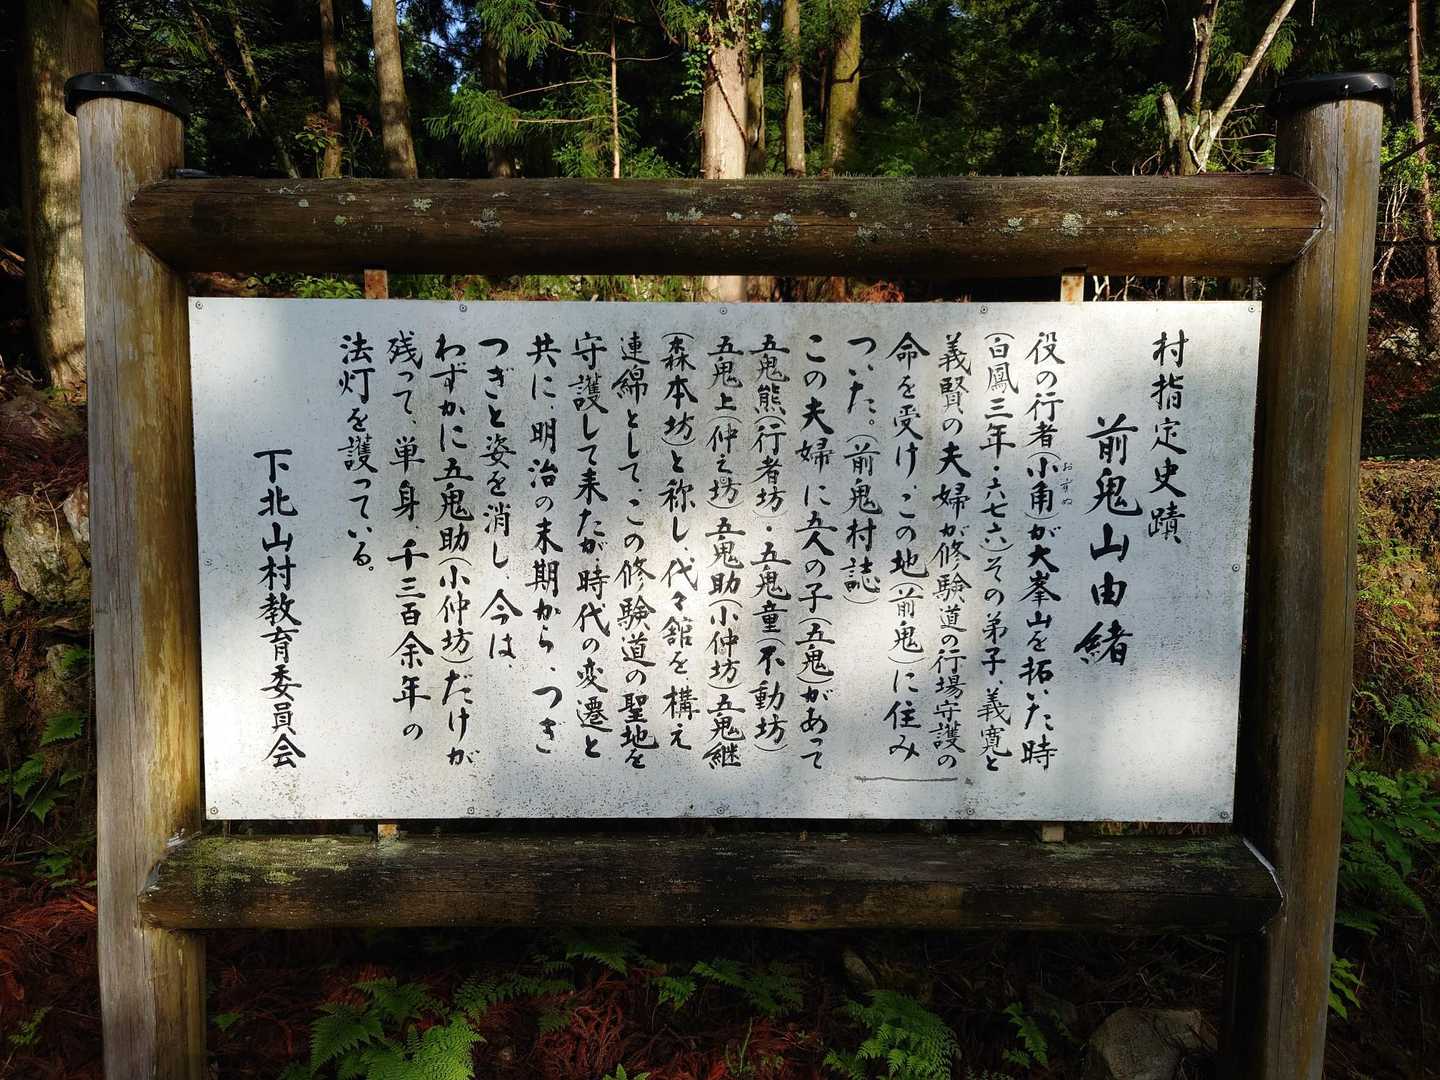 村指定史蹟
前鬼山由緒
役の行者(小角が大峯山を拓いた時
おずぬ
(白鳳三年・六七六)その弟子、義寛と
義賢の夫婦が修験道の行場守護の
命を受け、この地(前鬼)に住み
ついた。(前鬼村誌)
この夫婦に五人の子(五鬼)があって
五鬼熊(行者坊)・五鬼童不動坊)
五鬼上(仲之坊)五鬼助(小仲坊)五鬼継
(森本坊)と称し、代々舘を構え
連綿として、この修験道の聖地を
守護して来たが、時代の変遷と
共に、明治の末期から、つぎ
つぎと姿を消し、今は、
わずかに五鬼助(小仲坊)だけが
残って、単身、千三百余年の
法灯を護っている。
下北山村教育委員会